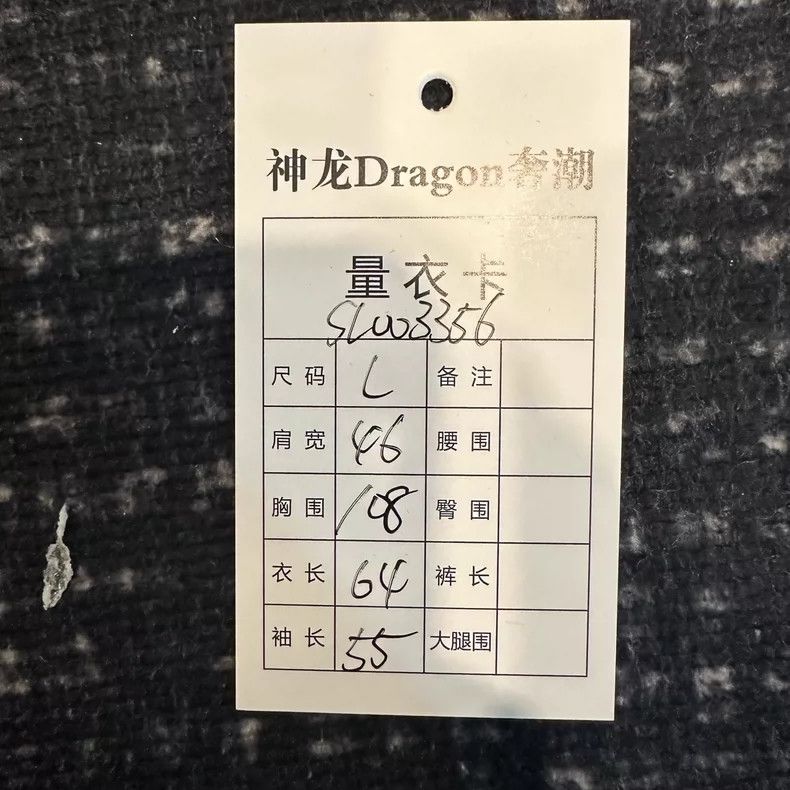 神龙Dragon奢潮
量衣卡
SL003356
尺码 L 备注
肩宽 46 腰围
胸围 108 臀围
衣长 64 裤长
袖长 55 大腿围